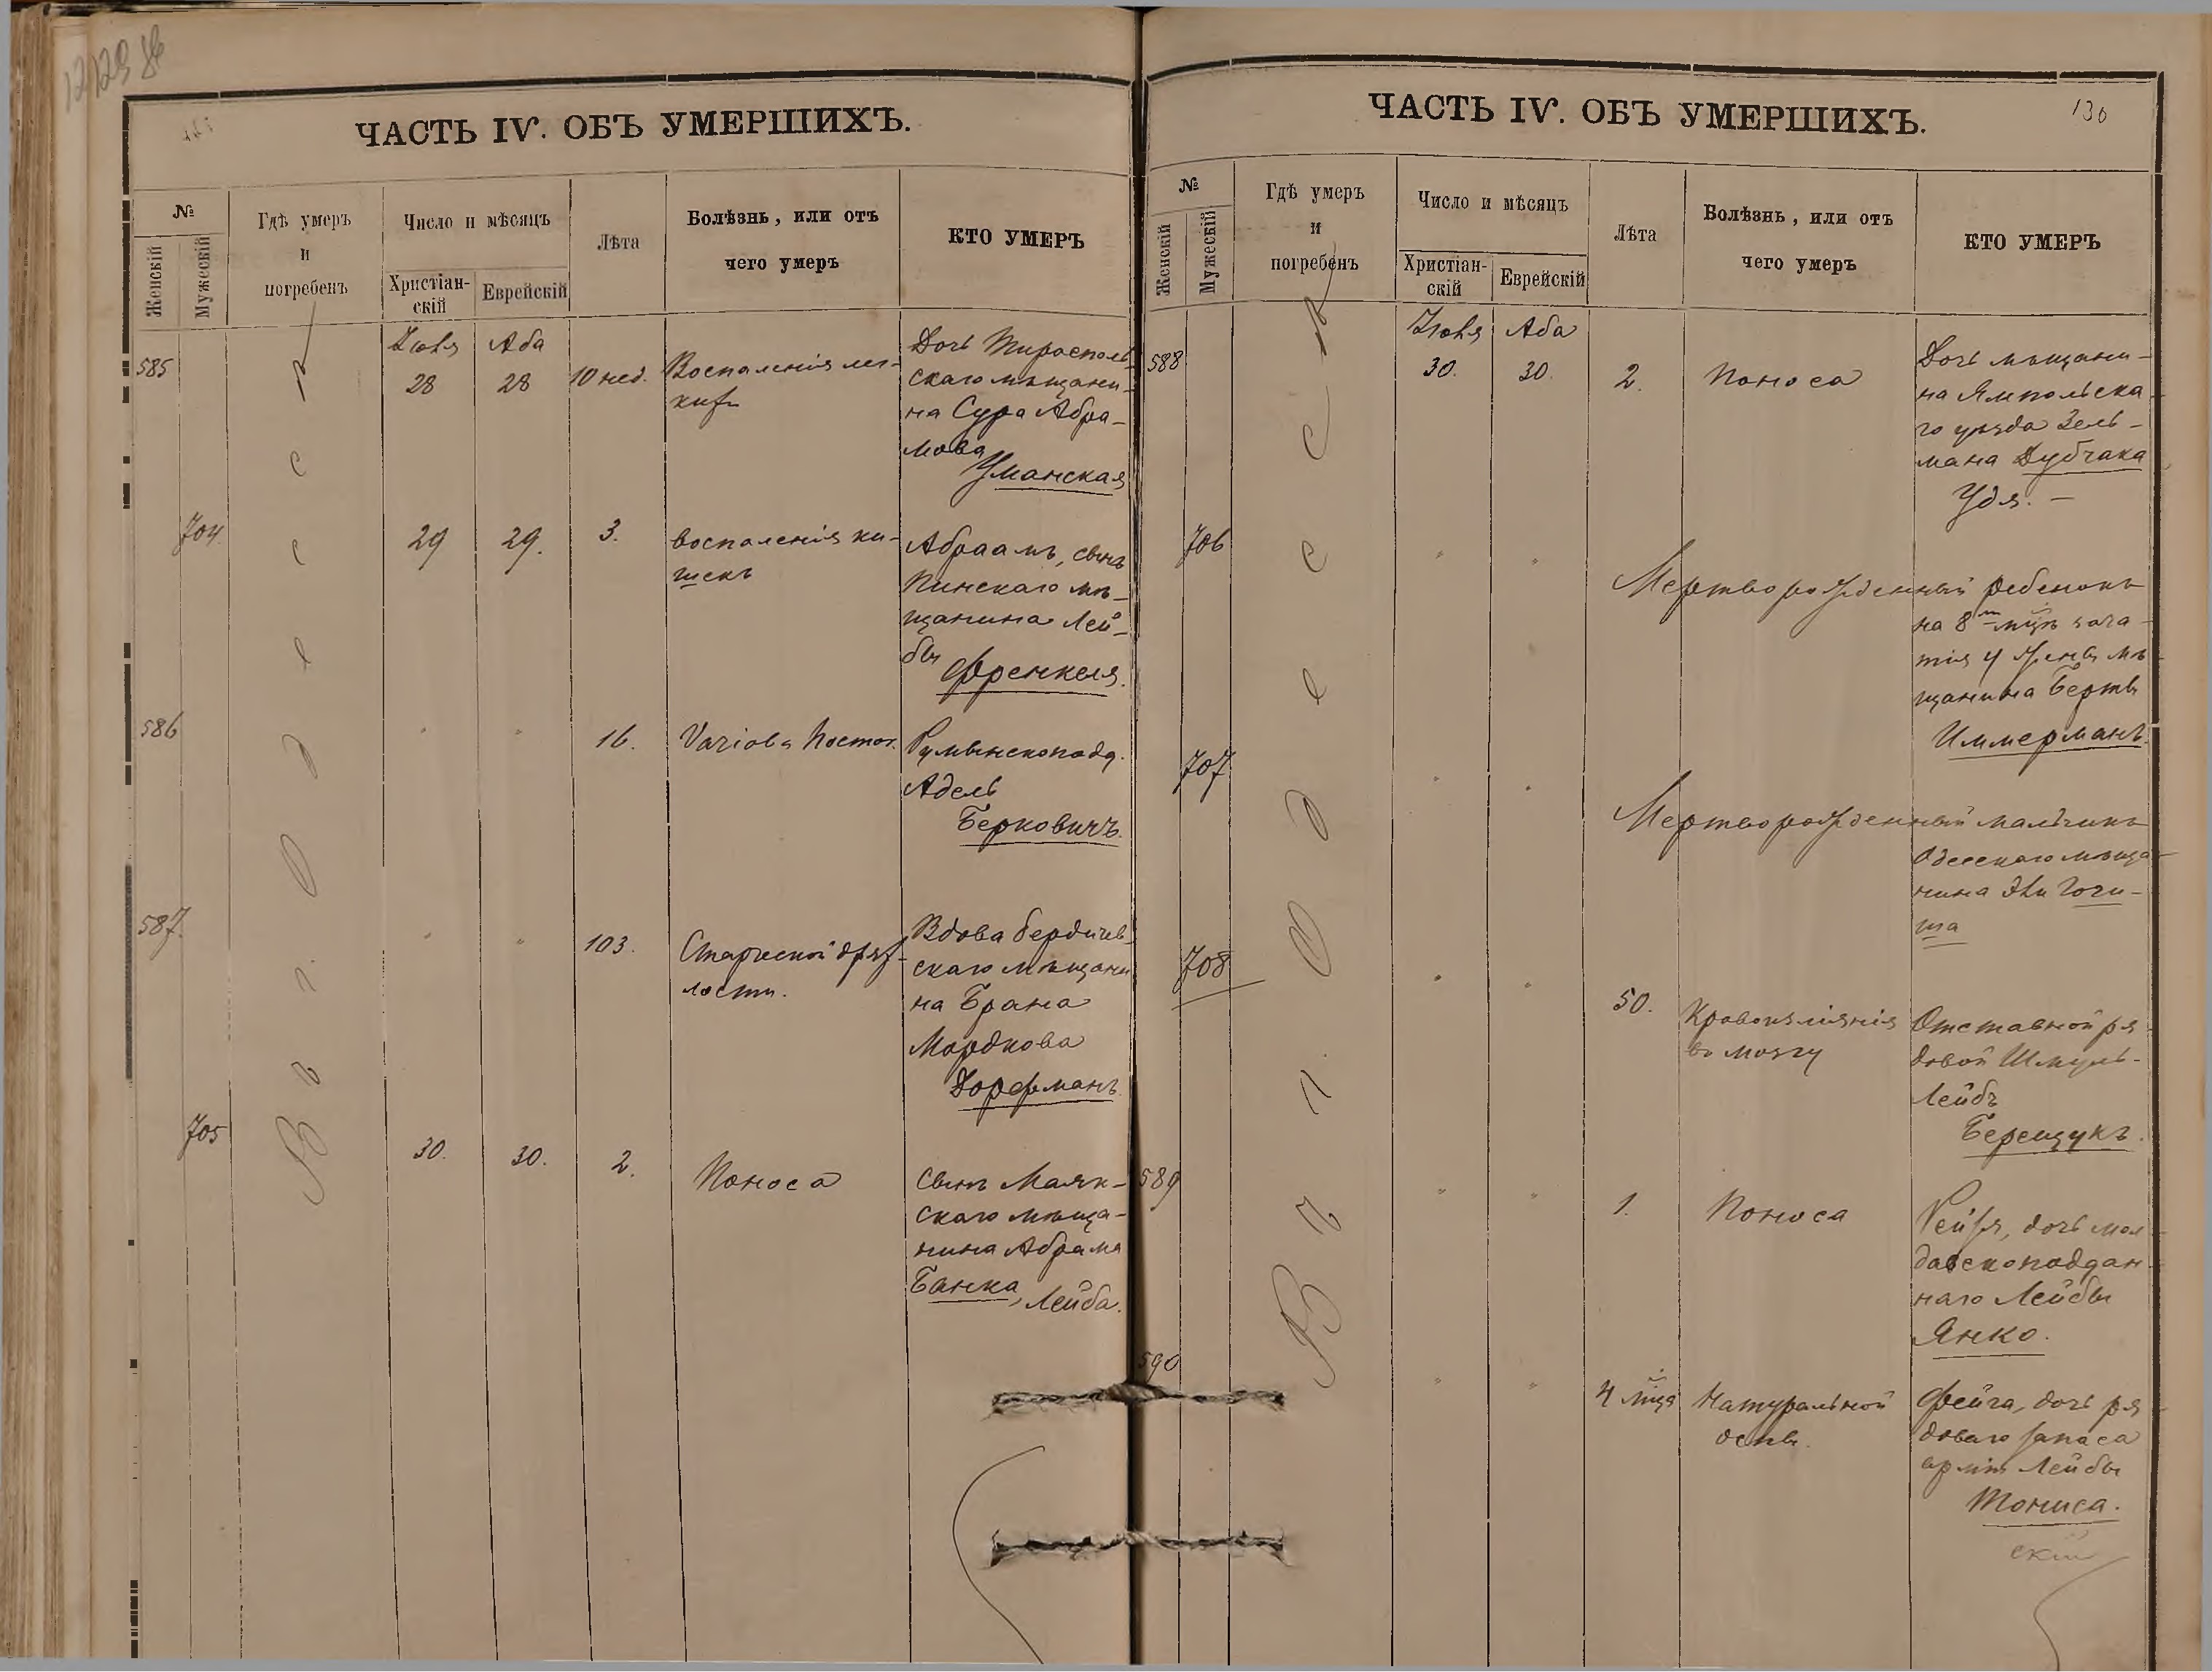 ЧАСТЬ IV. ОБЪ УМЕРШИХЪ.
№
Женскій
Мужескій
Гдѣ умеръ
и
погребенъ
Число и мѣсяцъ
Христіан-
скій
Еврейскій
Лѣта
Болѣзнь, или отъ
чего умеръ
КТО УМЕРЪ
Въ г. Одессѣ
585
Іюля
28
Аба
28
10 нед.
Воспаленія лег-
кихъ
Дочь Тирасполь-
скаго мѣщани-
на Сура Абра-
мова
Уманская
704
29
29.
3.
Воспаленія ки-
шекъ
Абраамъ, сынъ
Пинскаго мѣ-
щанина Лей-
бы
Френкеля.
586
"
"
16.
Румынскоподд.
Адель
Берковичъ.
587.
"
"
103.
Старческой дрях-
лости.
Вдова Бердичев-
скаго мѣщани
на Брана
Мордкова
Дорфманъ.
705
30.
30.
2.
Поноса
Сынъ Маяк-
скаго мѣща-
нина Абрама
Банка, Лейба.
ЧАСТЬ IV. ОБЪ УМЕРШИХЪ.
130
№
Женскій
Мужескій
Гдѣ умеръ
и
погребенъ
Число и мѣсяцъ
Христіан-
скій
Еврейскій
Лѣта
Болѣзнь, или отъ
чего умеръ
КТО УМЕРЪ
Въ г. Одессѣ
588
Іюля
30.
Аба
30.
2.
Поноса
Дочь мѣщани-
на Ямпольска
го уѣзда Зель-
мана Дубчака
Удя. —
706
"
"
Мертворожденный ребенокъ
на 8м мцѣ зача-
тія у жены мѣ
щанина Берты
Иммерманъ.
707
"
"
Мертворожденный мальчикъ
Одесскаго мѣща-
нина
708
"
"
50.
Кровоизліянія
въ мозгу
Отставной ря
довой Шмуль-
Лейбъ
Берещукъ.
589
"
"
1.
Поноса
Рейзя, дочь мол
давскоподдан
наго Лейбы
Янко.
590
"
"
4 мца
Натуральной
оспы.
Фейга, дочь ря
доваго запаса
арміи Лейбы
Тониса.